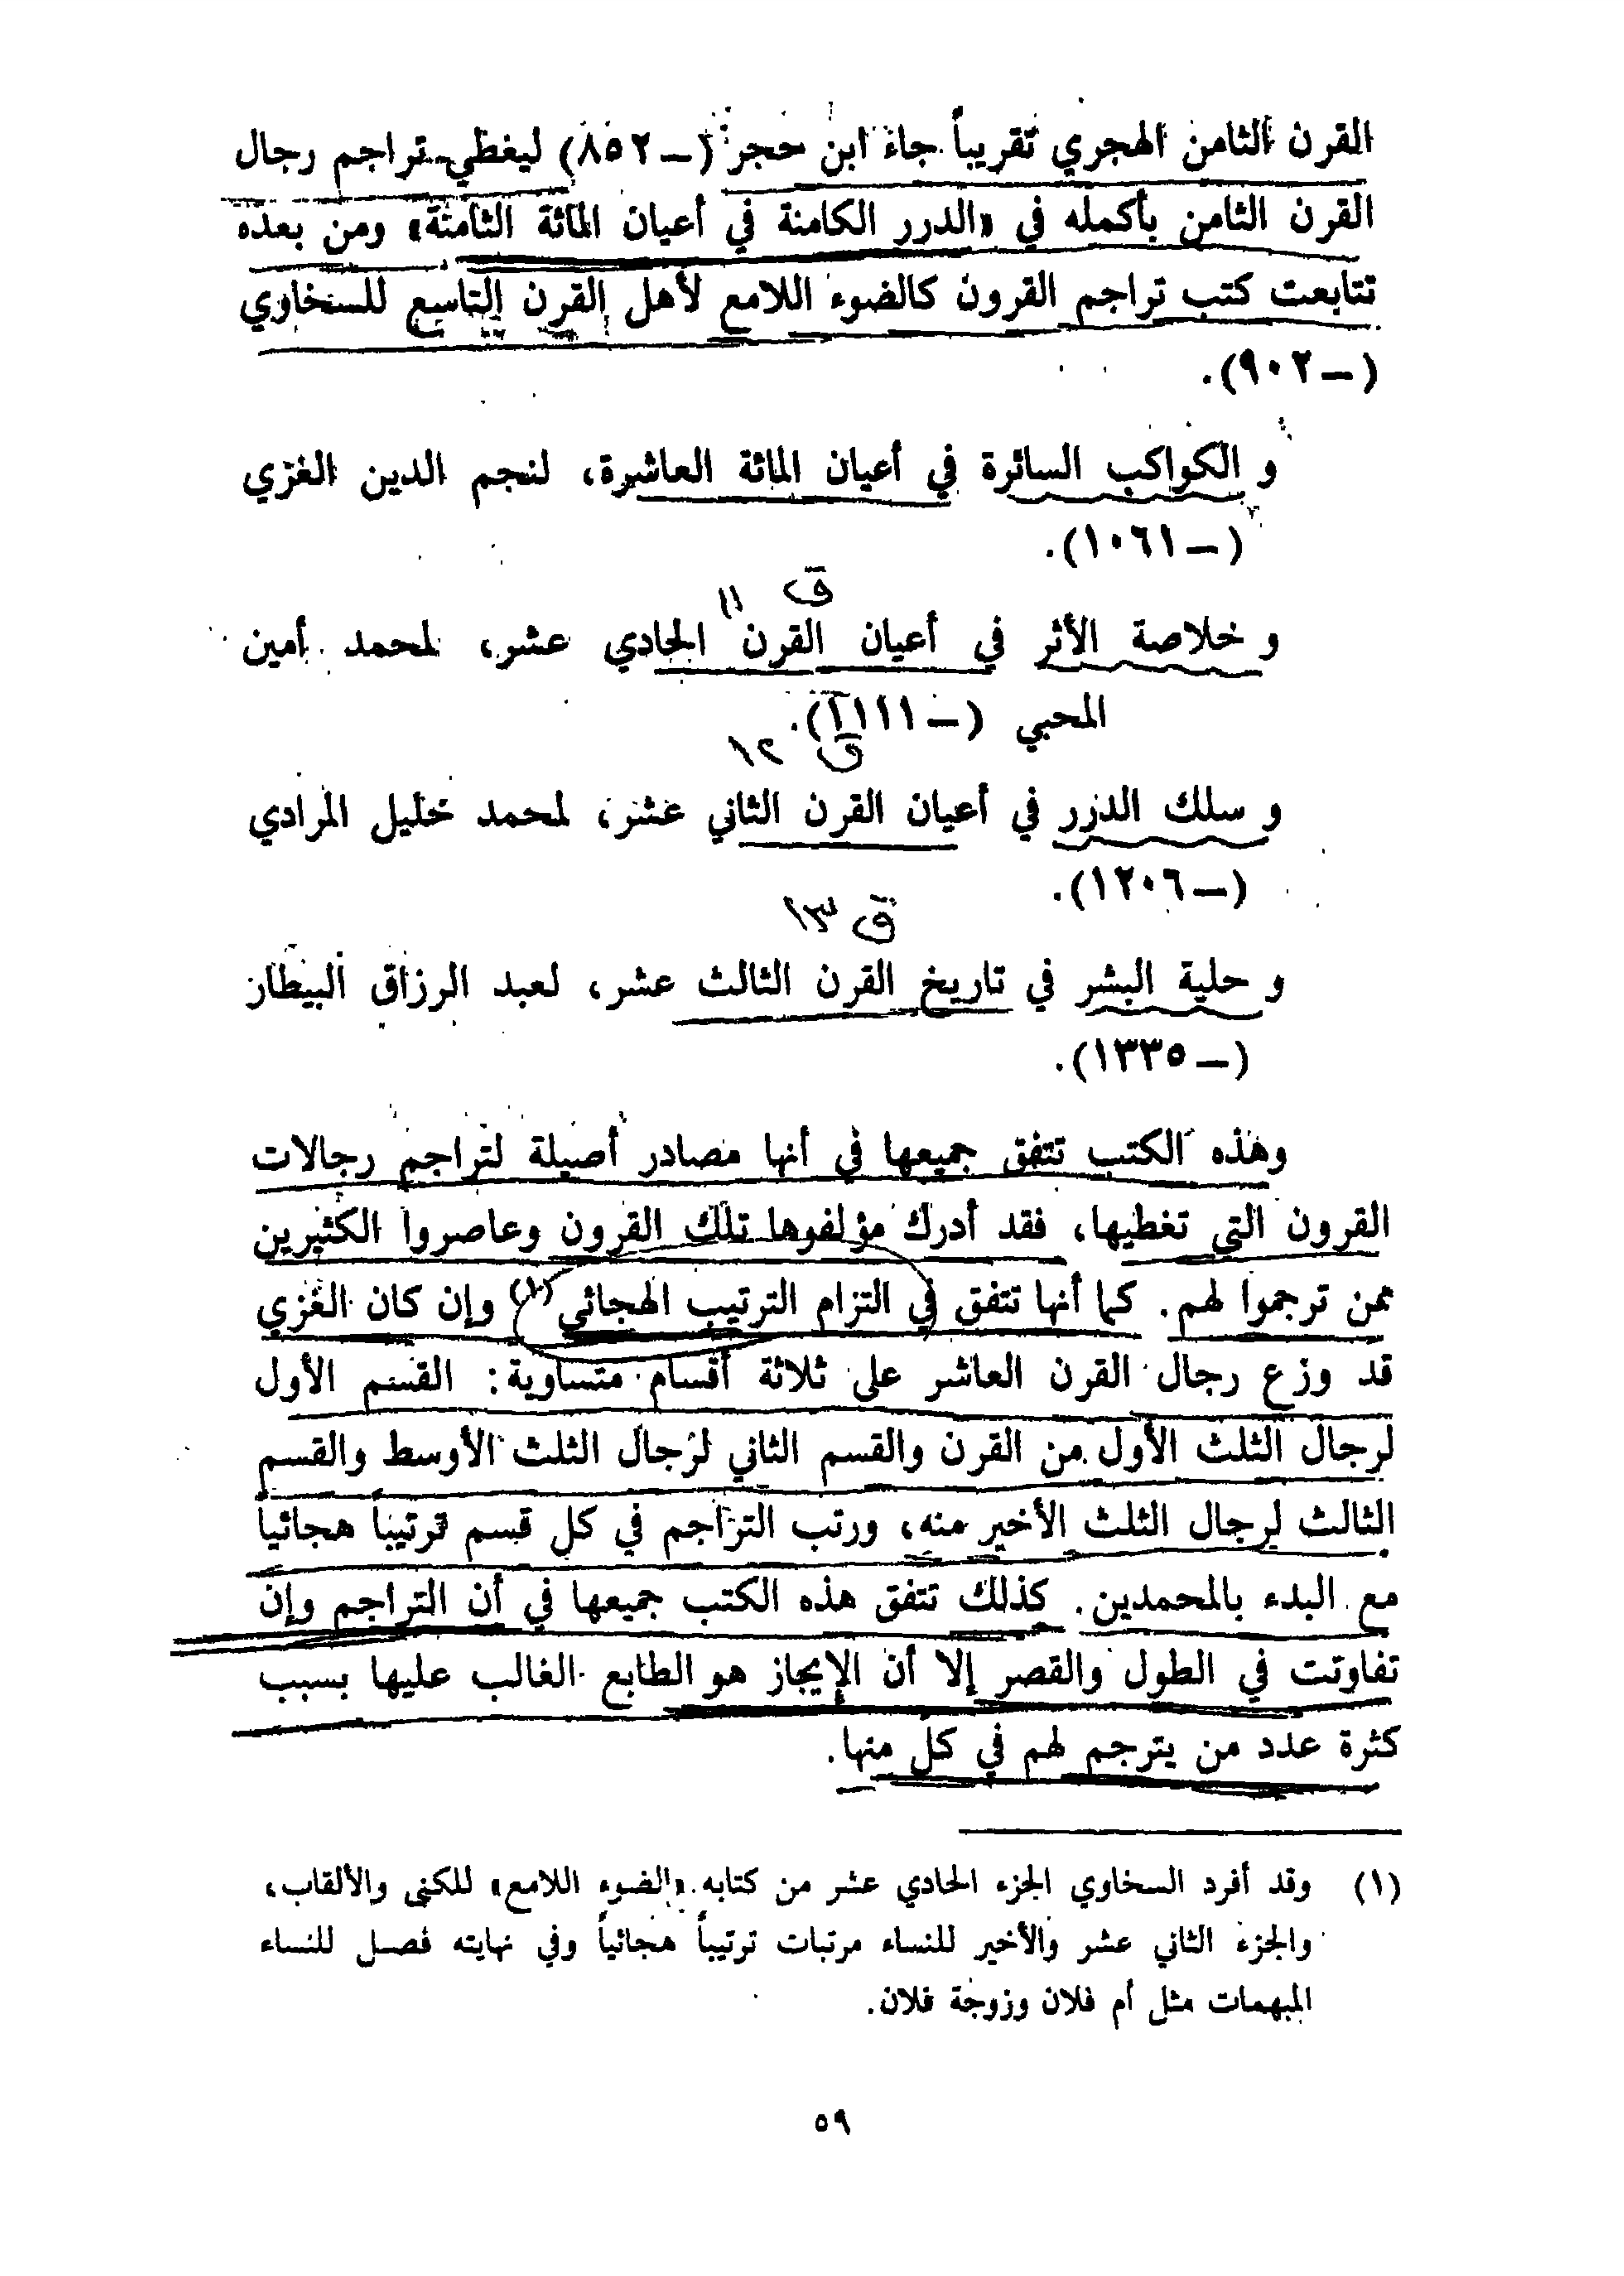 القرن الثامن الهجري تقريباً جاء ابن حجر (ــ ٨٥٢) ليغطي تراجم رجال
القرن الثامن بأكمله في «الدرر الكامنة في أعيان المائة الثامنة» ومن بعده
تتابعت كتب تراجم القرون كالضوء اللامع لأهل القرن التاسع للسخاوي
(ــ ٩٠٢).
و الكواكب السائرة في أعيان المائة العاشرة، لنجم الدين الغزي
(ــ ١٠٦١).
ق ١١
و خلاصة الأثر في أعيان القرن الحادي عشر، لمحمد أمين
المحبي (ــ ١١١١).
ق ١٢
و سلك الدرر في أعيان القرن الثاني عشر، لمحمد خليل المرادي
(ــ ١٢٠٦).
ق ١٣
و حلية البشر في تاريخ القرن الثالث عشر، لعبد الرزاق البيطار
(ــ ١٣٣٥).
وهذه الكتب تتفق جميعها في أنها مصادر أصيلة لتراجم رجالات
القرون التي تغطيها، فقد أدرك مؤلفوها تلك القرون وعاصروا الكثيرين
ممن ترجموا لهم. كما أنها تتفق في التزام الترتيب الهجائي(١) وإن كان الغزي
قد وزع رجال القرن العاشر على ثلاثة أقسام متساوية: القسم الأول
لرجال الثلث الأول من القرن والقسم الثاني لرجال الثلث الأوسط والقسم
الثالث لرجال الثلث الأخير منه، ورتب التراجم في كل قسم ترتيباً هجائياً
مع البدء بالمحمدين. كذلك تتفق هذه الكتب جميعها في أن التراجم وإن
تفاوتت في الطول والقصر إلا أن الإيجاز هو الطابع الغالب عليها بسبب
كثرة عدد من يترجم لهم في كل منها.
(١) وقد أفرد السخاوي الجزء الحادي عشر من كتابه «الضوء اللامع» للكنى والألقاب،
والجزء الثاني عشر والأخير للنساء مرتبات ترتيباً هجائياً وفي نهايته فصل للنساء
المبهمات مثل أم فلان وزوجة فلان.
٥٩